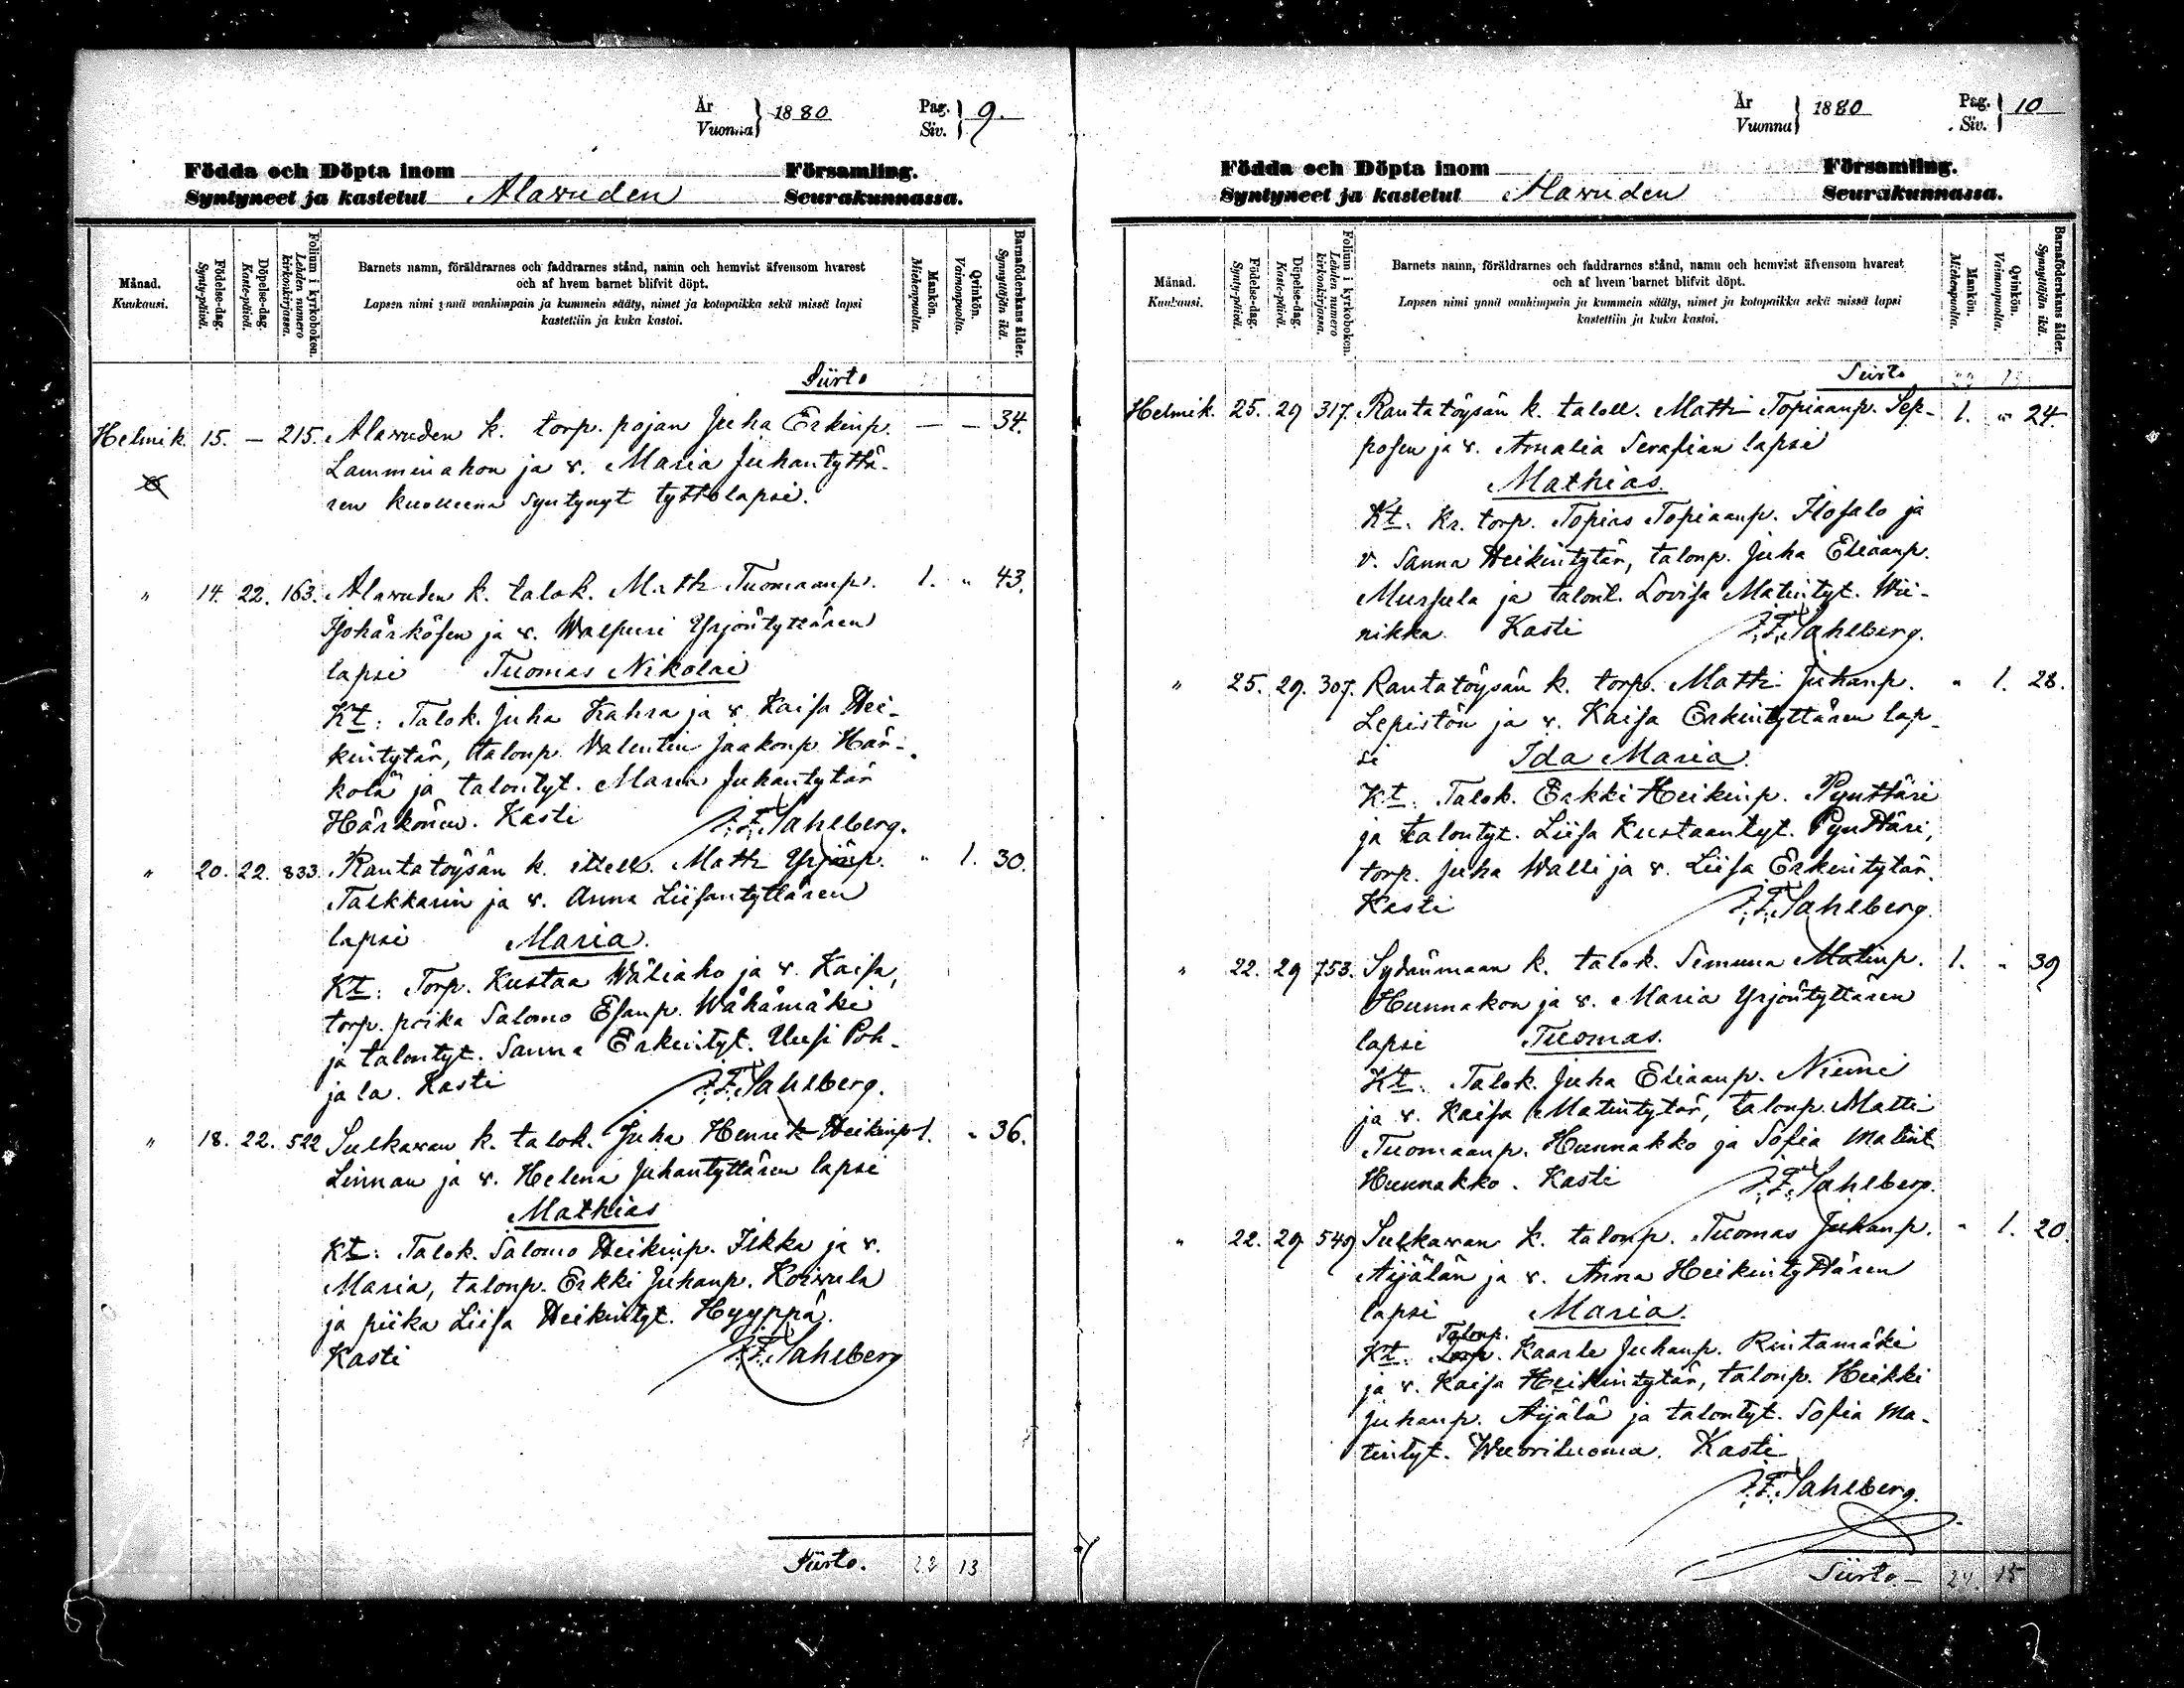 År
Vuonna
1880
Pag.
Siv.
9.
Födda och Döpta inom Församling.
Syntyneet ja kastetut Alavuden Seurakunnassa.
Månad.
Kuukausi.
Födelse-dag.
Synty-päivä.
Döpelse-dag.
Kaste-päivä.
Folium i kyrkoboken.
Lehden numero
kirkonkirjassa.
Barnets namn, föräldrarnes och faddrarnes stånd, namn och hemvist äfvensom hvarest
och af hvem barnet blifvit döpt.
Lapsen nimi ynnä vanhimpain ja kummein sääty, nimet ja kotopaikka sekä missä lapsi
kastettiin ja kuka kastoi.
Mankön.
Miehenpuolta.
Qvinkön.
Vaimonpuolta.
Barnaföderskans ålder.
Synnyttäjän ikä.
Siirto
Helmik. 15. — 215. Alavuden k. torp. pojan Juha Erkinp. — — 34.
Lamminahon ja v. Maria Juhantyttä-
ren kuolleena syntynyt tyttölapsi.
" 14. 22. 163. Alavuden k. talok. Matti Tuomaanp. 1. " 43.
Isohärkösen ja v. Walpuri Yrjöntyttären
lapsi Tuomas Nikolai
Kt: Talok. Juha Kahra ja v. Kaisa Hei-
kintytär, talonp. Valentin Jaakonp. Här-
kolä ja talontyt. Maria Juhantytär
Härkönen. Kasti J.F. Sahlberg.
" 20. 22. 833. Rantatöysän k. itell. Matti Yrjönp. " 1. 30.
Talkkarin ja v. Anna Liisantyttären
lapsi Maria.
Kt: Torp. Kustaa Wäliaho ja v. Kaisa,
torp. poika Salomo Esanp. Wähämäki
ja talontyt. Sanna Erkintyt. Uusi Poh-
jala. Kasti J.F. Sahlberg.
" 18. 22. 522 Sulkavan k. talok. Juha Henrik Heikinp. 1. " 36.
Linnan ja v. Helena Juhantyttären lapsi
Mathias
Kt: Talok. Salomo Heikinp. Ilkka ja v.
Maria, talonp. Erkki Juhanp. Koivula
ja piika Liisa Heikintyt. Hyyppä.
Kasti J.F. Sahlberg
Siirto. 22 13
År
Vuonna
1880
Pag.
Siv.
10
Födda och Döpta inom Församling.
Syntyneet ja kastetut Alavuden Seurakunnassa.
Månad.
Kuukausi.
Födelse-dag.
Synty-päivä.
Döpelse-dag.
Kaste-päivä.
Folium i kyrkoboken.
Lehden numero
kirkonkirjassa.
Barnets namn, föräldrarnes och faddrarnes stånd, namn och hemvist äfvensom hvarest
och af hvem barnet blifvit döpt.
Lapsen nimi ynnä vanhimpain ja kummein sääty, nimet ja kotopaikka sekä missä lapsi
kastettiin ja kuka kastoi.
Mankön.
Miehenpuolta.
Qvinkön.
Vaimonpuolta.
Barnaföderskans ålder.
Synnyttäjän ikä.
Siirto
Helmik. 25. 29 317. Rantatöysän k. taloll. Matti Topiaanp. Sep- 1. " 24.
posen ja v. Amalia Serafian lapsi
Mathias.
Kt. Kr. torp. Topias Topiaanp. Isosalo ja
v. Sanna Heikintytär, talonp. Juha Eliaanp.
Mursula ja talont. Lovisa Matintyt. Wii-
nikka. Kasti J.F. Sahlberg.
" 25. 29. 307. Rantatöysän k. torp. Matti Juhanp. " 1. 28.
Lepistön ja v. Kaisa Erkintyttären lap-
si Ida Maria
Kt: Talok. Erkki Heikinp. Pynttäri
ja talontyt. Liisa Kustaantyt. Pynttäri,
torp. Juha Walli ja v. Liisa Erkintytär.
Kasti J.F. Sahlberg.
" 22. 29 753. Sydänmaan k. talok. Simuna Matinp. 1. " 39
Hunnakon ja v. Maria Yrjöntyttären
lapsi Tuomas.
Kt. Talok. Juha Eliaanp. Niemi
ja v. Kaisa Matintytär, talonp. Matti
Tuomaanp. Hunnakko ja Sofia Matint.
Hunnakko. Kasti J.F. Sahlberg.
" 22. 29 549 Sulkavan k. talonp. Tuomas Juhanp. " 1. 20.
Äijälän ja v. Anna Heikintyttären
lapsi Maria.
Talonp.
Kt. Torp. Kaarle Juhanp. Rintamäki
ja v. Kaisa Heikintytär, talonp. Heikki
Juhanp. Äijälä ja talontyt. Sofia Ma-
tintyt. Wuoriluoma. Kasti
J.F. Sahlberg.
Siirto. - 24. 15